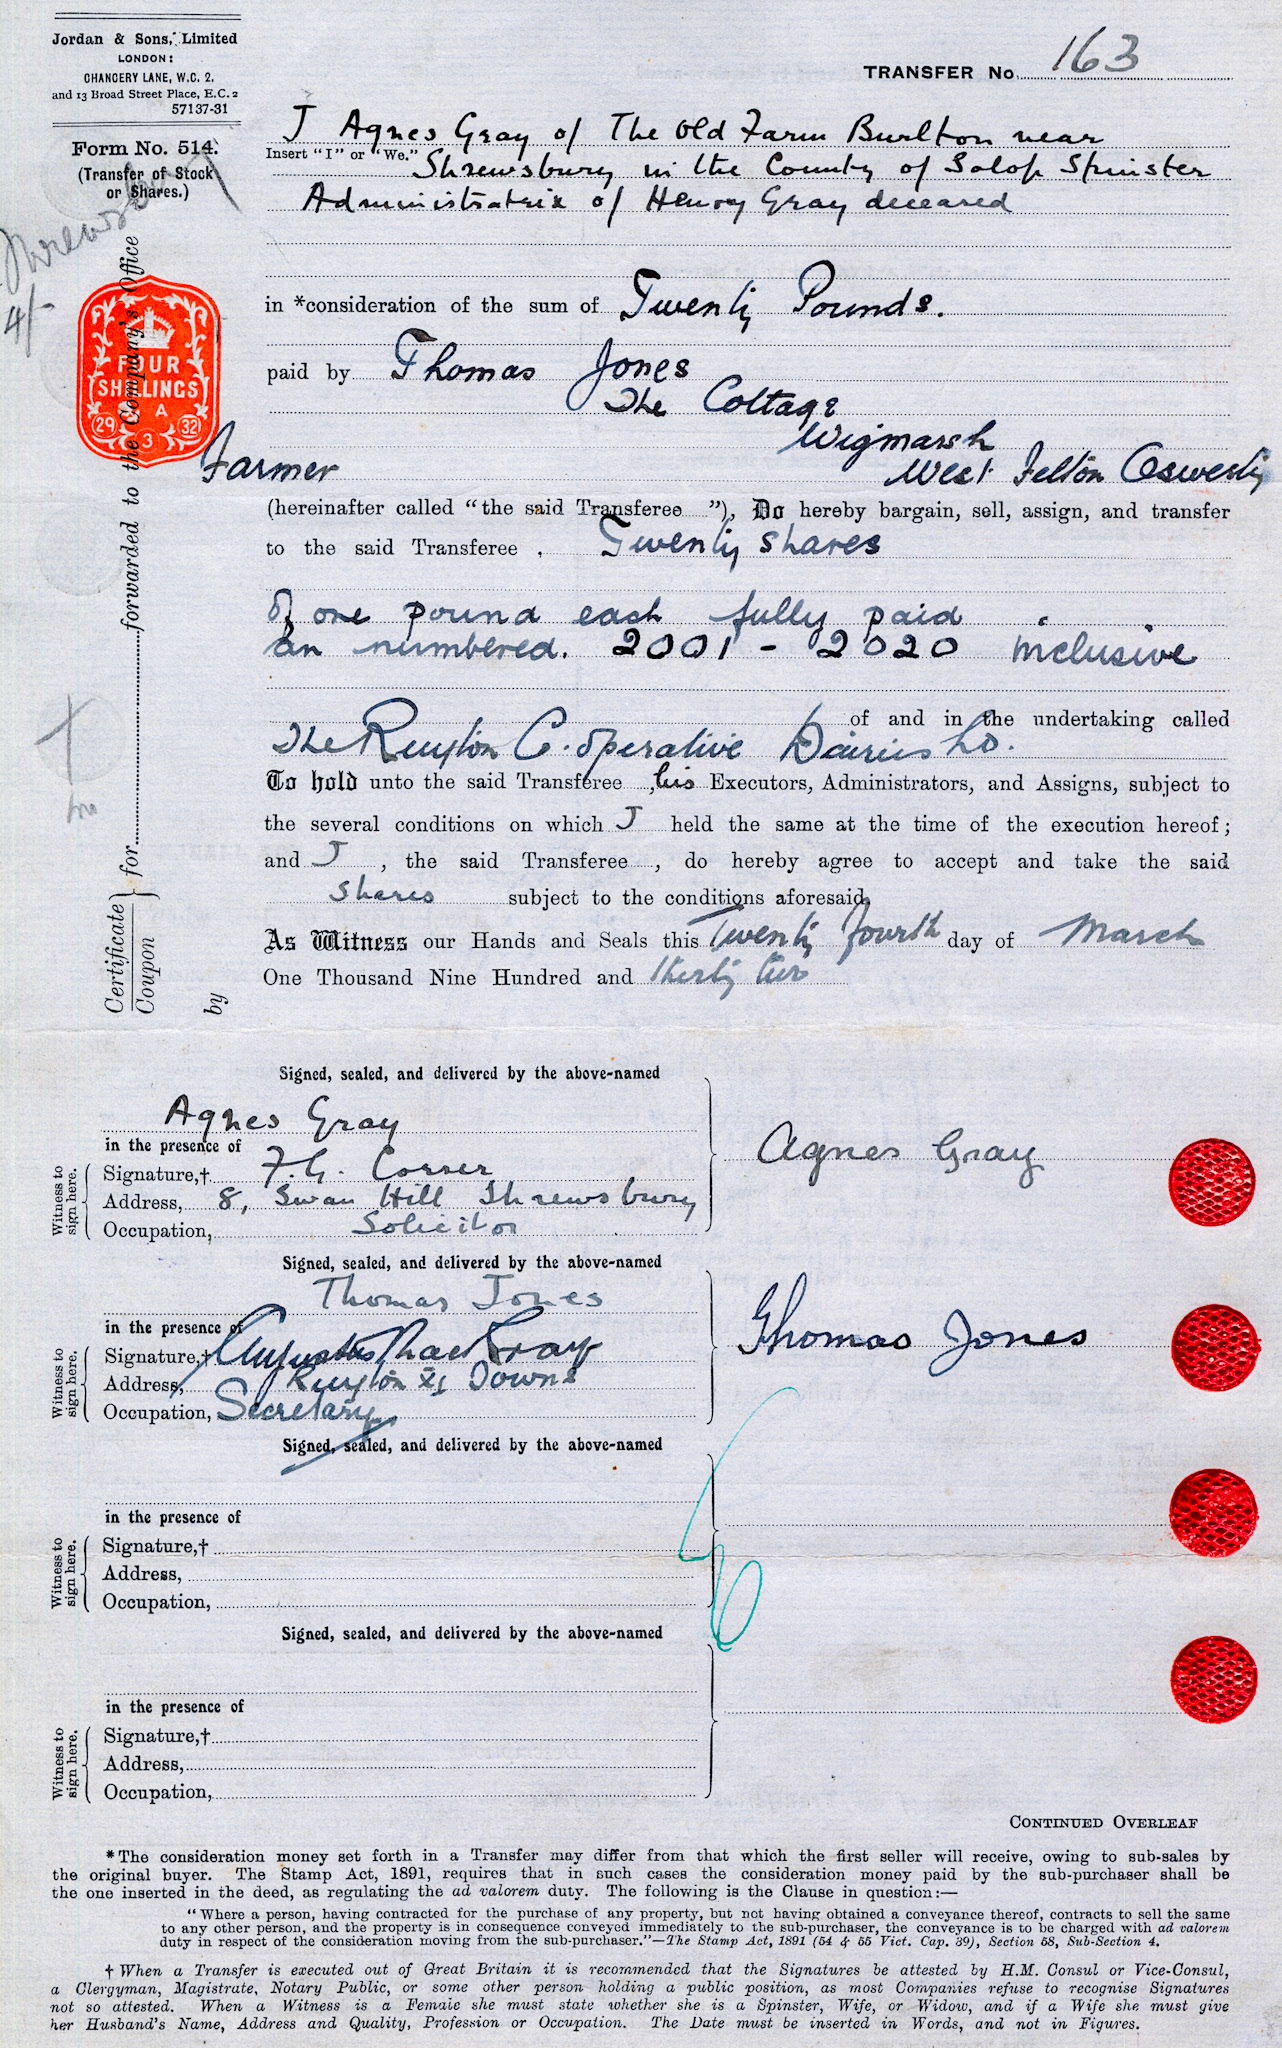 Jordan & Sons, Limited
LONDON:
CHANCERY LANE, W.C. 2.
and 13 Broad Street Place, E.C. 2
57137-31
Form No. 514.
(Transfer of Stock
or Shares.)
Shrewsbury
4/-
TRANSFER No. 163
I Agnes Gray of The Old Farm Burlton near
Insert "I" or "We." Shrewsbury in the County of Salop Spinster
Administratrix of Henry Gray deceased
in *consideration of the sum of Twenty Pounds.
paid by Thomas Jones
The Cottage
Wigmarsh
Farmer West Felton Oswestry
FOUR
SHILLINGS
A
29 3 32
(hereinafter called "the said Transferee "), Do hereby bargain, sell, assign, and transfer
to the said Transferee , Twenty shares
of one pound each fully paid
an numbered. 2001 - 2020 inclusive
of and in the undertaking called
The Ruyton Co. operative Dairies Ld.
To hold unto the said Transferee , his Executors, Administrators, and Assigns, subject to
the several conditions on which I held the same at the time of the execution hereof;
and I , the said Transferee , do hereby agree to accept and take the said
shares subject to the conditions aforesaid,
As Witness our Hands and Seals this Twenty fourth day of March
One Thousand Nine Hundred and thirty two
Certificate
Coupon
} for forwarded to the Company's Office
by
Signed, sealed, and delivered by the above-named
Agnes Gray
in the presence of
Agnes Gray
Witness to
sign here.
Signature,† F.G. Corser
Address, 8, Swan Hill Shrewsbury
Occupation, Solicitor
Signed, sealed, and delivered by the above-named
Thomas Jones
in the presence of
Thomas Jones
Witness to
sign here.
Signature,† Augustus
Address, Ruyton XI Downs
Occupation, Secretary
Signed, sealed, and delivered by the above-named
in the presence of
Witness to
sign here.
Signature,†
Address,
Occupation,
Signed, sealed, and delivered by the above-named
in the presence of
Witness to
sign here.
Signature,†
Address,
Occupation,
CONTINUED OVERLEAF
*The consideration money set forth in a Transfer may differ from that which the first seller will receive, owing to sub-sales by
the original buyer. The Stamp Act, 1891, requires that in such cases the consideration money paid by the sub-purchaser shall be
the one inserted in the deed, as regulating the ad valorem duty. The following is the Clause in question:—
"Where a person, having contracted for the purchase of any property, but not having obtained a conveyance thereof, contracts to sell the same
to any other person, and the property is in consequence conveyed immediately to the sub-purchaser, the conveyance is to be charged with ad valorem
duty in respect of the consideration moving from the sub-purchaser."—The Stamp Act, 1891 (54 & 55 Vict. Cap. 39), Section 58, Sub-Section 4.
† When a Transfer is executed out of Great Britain it is recommended that the Signatures be attested by H.M. Consul or Vice-Consul,
a Clergyman, Magistrate, Notary Public, or some other person holding a public position, as most Companies refuse to recognise Signatures
not so attested. When a Witness is a Female she must state whether she is a Spinster, Wife, or Widow, and if a Wife she must give
her Husband's Name, Address and Quality, Profession or Occupation. The Date must be inserted in Words, and not in Figures.